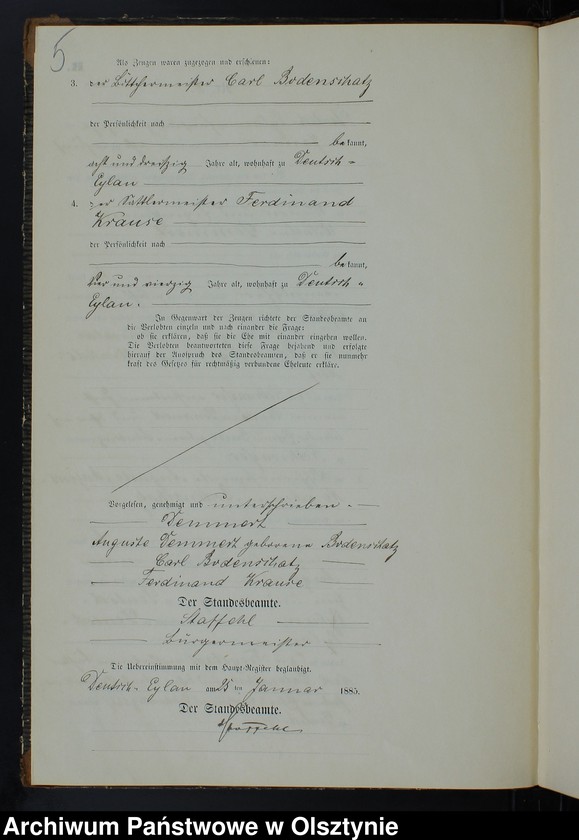 5
Als Zeugen waren zugezogen und erschienen:
3. der Böttchermeister Carl Bodenschatz
der Persönlichkeit nach
bekannt,
acht und dreißig Jahre alt, wohnhaft zu Deutsch-
Eylau
4. der Sattlermeister Ferdinand
Krause
der Persönlichkeit nach
bekannt,
vier und vierzig Jahre alt, wohnhaft zu Deutsch-
Eylau.
In Gegenwart der Zeugen richtete der Standesbeamte an
die Verlobten einzeln und nach einander die Frage:
ob sie erklären, daß sie die Ehe mit einander eingehen wollen.
Die Verlobten beantworteten diese Frage bejahend und erfolgte
hierauf der Ausspruch des Standesbeamten, daß er sie nunmehr
kraft des Gesetzes für rechtmäßig verbundene Eheleute erkläre.
Vorgelesen, genehmigt und unterschrieben
Demmert
Auguste Demmert geborene Bodenschatz
Carl Bodenschatz
Ferdinand Krause
Der Standesbeamte.
Staffehl
Bürgermeister
Die Uebereinstimmung mit dem Haupt-Register beglaubigt.
Deutsch-Eylau am 25 ten Januar 1885.
Der Standesbeamte.
Staffehl
Archiwum Państwowe w Olsztynie